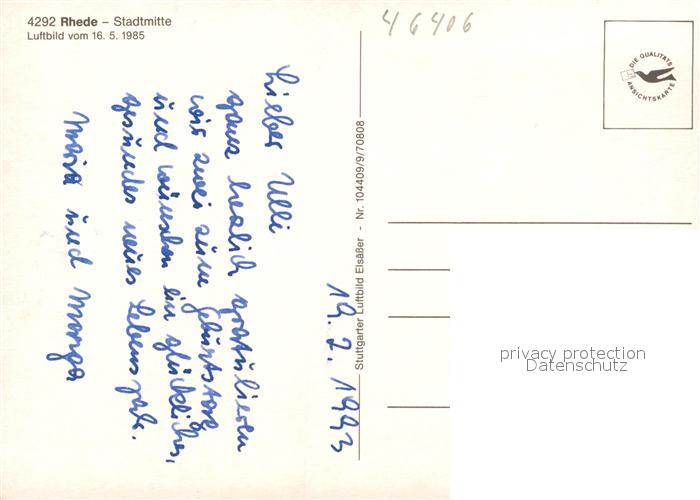 4292 Rhede – Stadtmitte
Luftbild vom 16. 5. 1985
46406
DIE QUALITÄTS
ANSICHTSKARTE
19. 2. 1993
Lieber Ulli
ganz herzlich gratulieren
wir zwei zum Geburtstag
und wünschen ein glückliches,
gesundes neues Lebensjahr.
Maria und Marga
Stuttgarter Luftbild Elsäßer - Nr. 104409/9/70808
privacy protection
Datenschutz